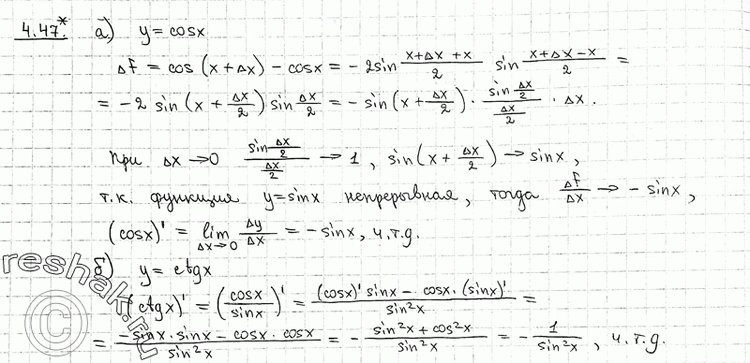 4.47.* а) y = cosx
Δf = cos (x + Δx) - cosx = -2sin (x+Δx+x)/2 sin (x+Δx-x)/2 =
= -2 sin(x + Δx/2) sin Δx/2 = -sin(x + Δx/2) · (sin Δx/2)/(Δx/2) · Δx.
При Δx→0 (sin Δx/2)/(Δx/2) → 1, sin(x + Δx/2) → sinx,
т.к. функция y=sinx непрерывная, тогда Δf/Δx → -sinx,
(cosx)' = lim Δx→0 Δy/Δx = -sinx, ч.т.д.
б) y = ctgx
(ctgx)' = (cosx/sinx)' = ((cosx)' sinx - cosx·(sinx)')/sin²x =
= (-sinx·sinx - cosx·cosx)/sin²x = - (sin²x + cos²x)/sin²x = - 1/sin²x, ч.т.д.
reshak.ru
©